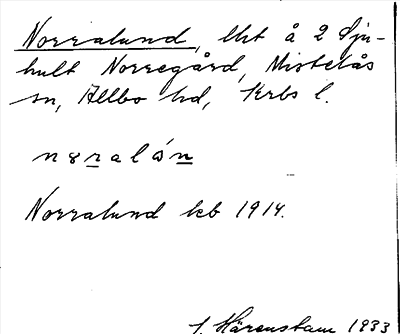 Norralund, lht å 2 Sju-
hult Norregård, Mistelås
sn, Allbo hd, Krbs l.
Norralund kb 1914.
J. Härenstam 1933